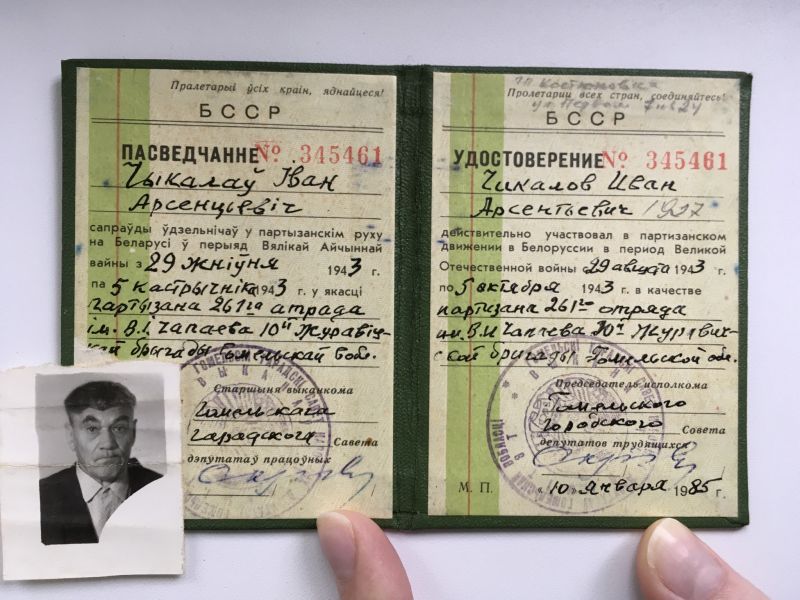 Пралетарыі ўсіх краін, яднайцеся!
БССР
ПАСВЕДЧАННЕ № 345461
Чыкалаў Іван
Арсенцьевіч
сапраўды ўдзельнічаў у партызанскім руху
на Беларусі ў перыяд Вялікай Айчыннай
вайны з 29 жніўня 1943 г.
па 5 кастрычніка 1943 г. у якасці
партызана 261га атрада
ім. В.І. Чапаева 10й Журавіц-
кай брыгады Гомельскай вобл.
Старшыня выканкома
Гомельскага
гарадскога Савета
дэпутатаў працоўных
Пролетарии всех стран, соединяйтесь!
БССР
УДОСТОВЕРЕНИЕ № 345461
Чикалов Иван
Арсентьевич 1927
действительно участвовал в партизанском
движении в Белоруссии в период Великой
Отечественной войны с 29 августа 1943 г.
по 5 октября 1943 г. в качестве
партизана 261го отряда
им. В.И Чапаева 10й Журавич-
ской бригады Гомельской обл.
Председатель исполкома
Гомельского
городского Совета
депутатов трудящихся
М. П. „10" января 1985 г.